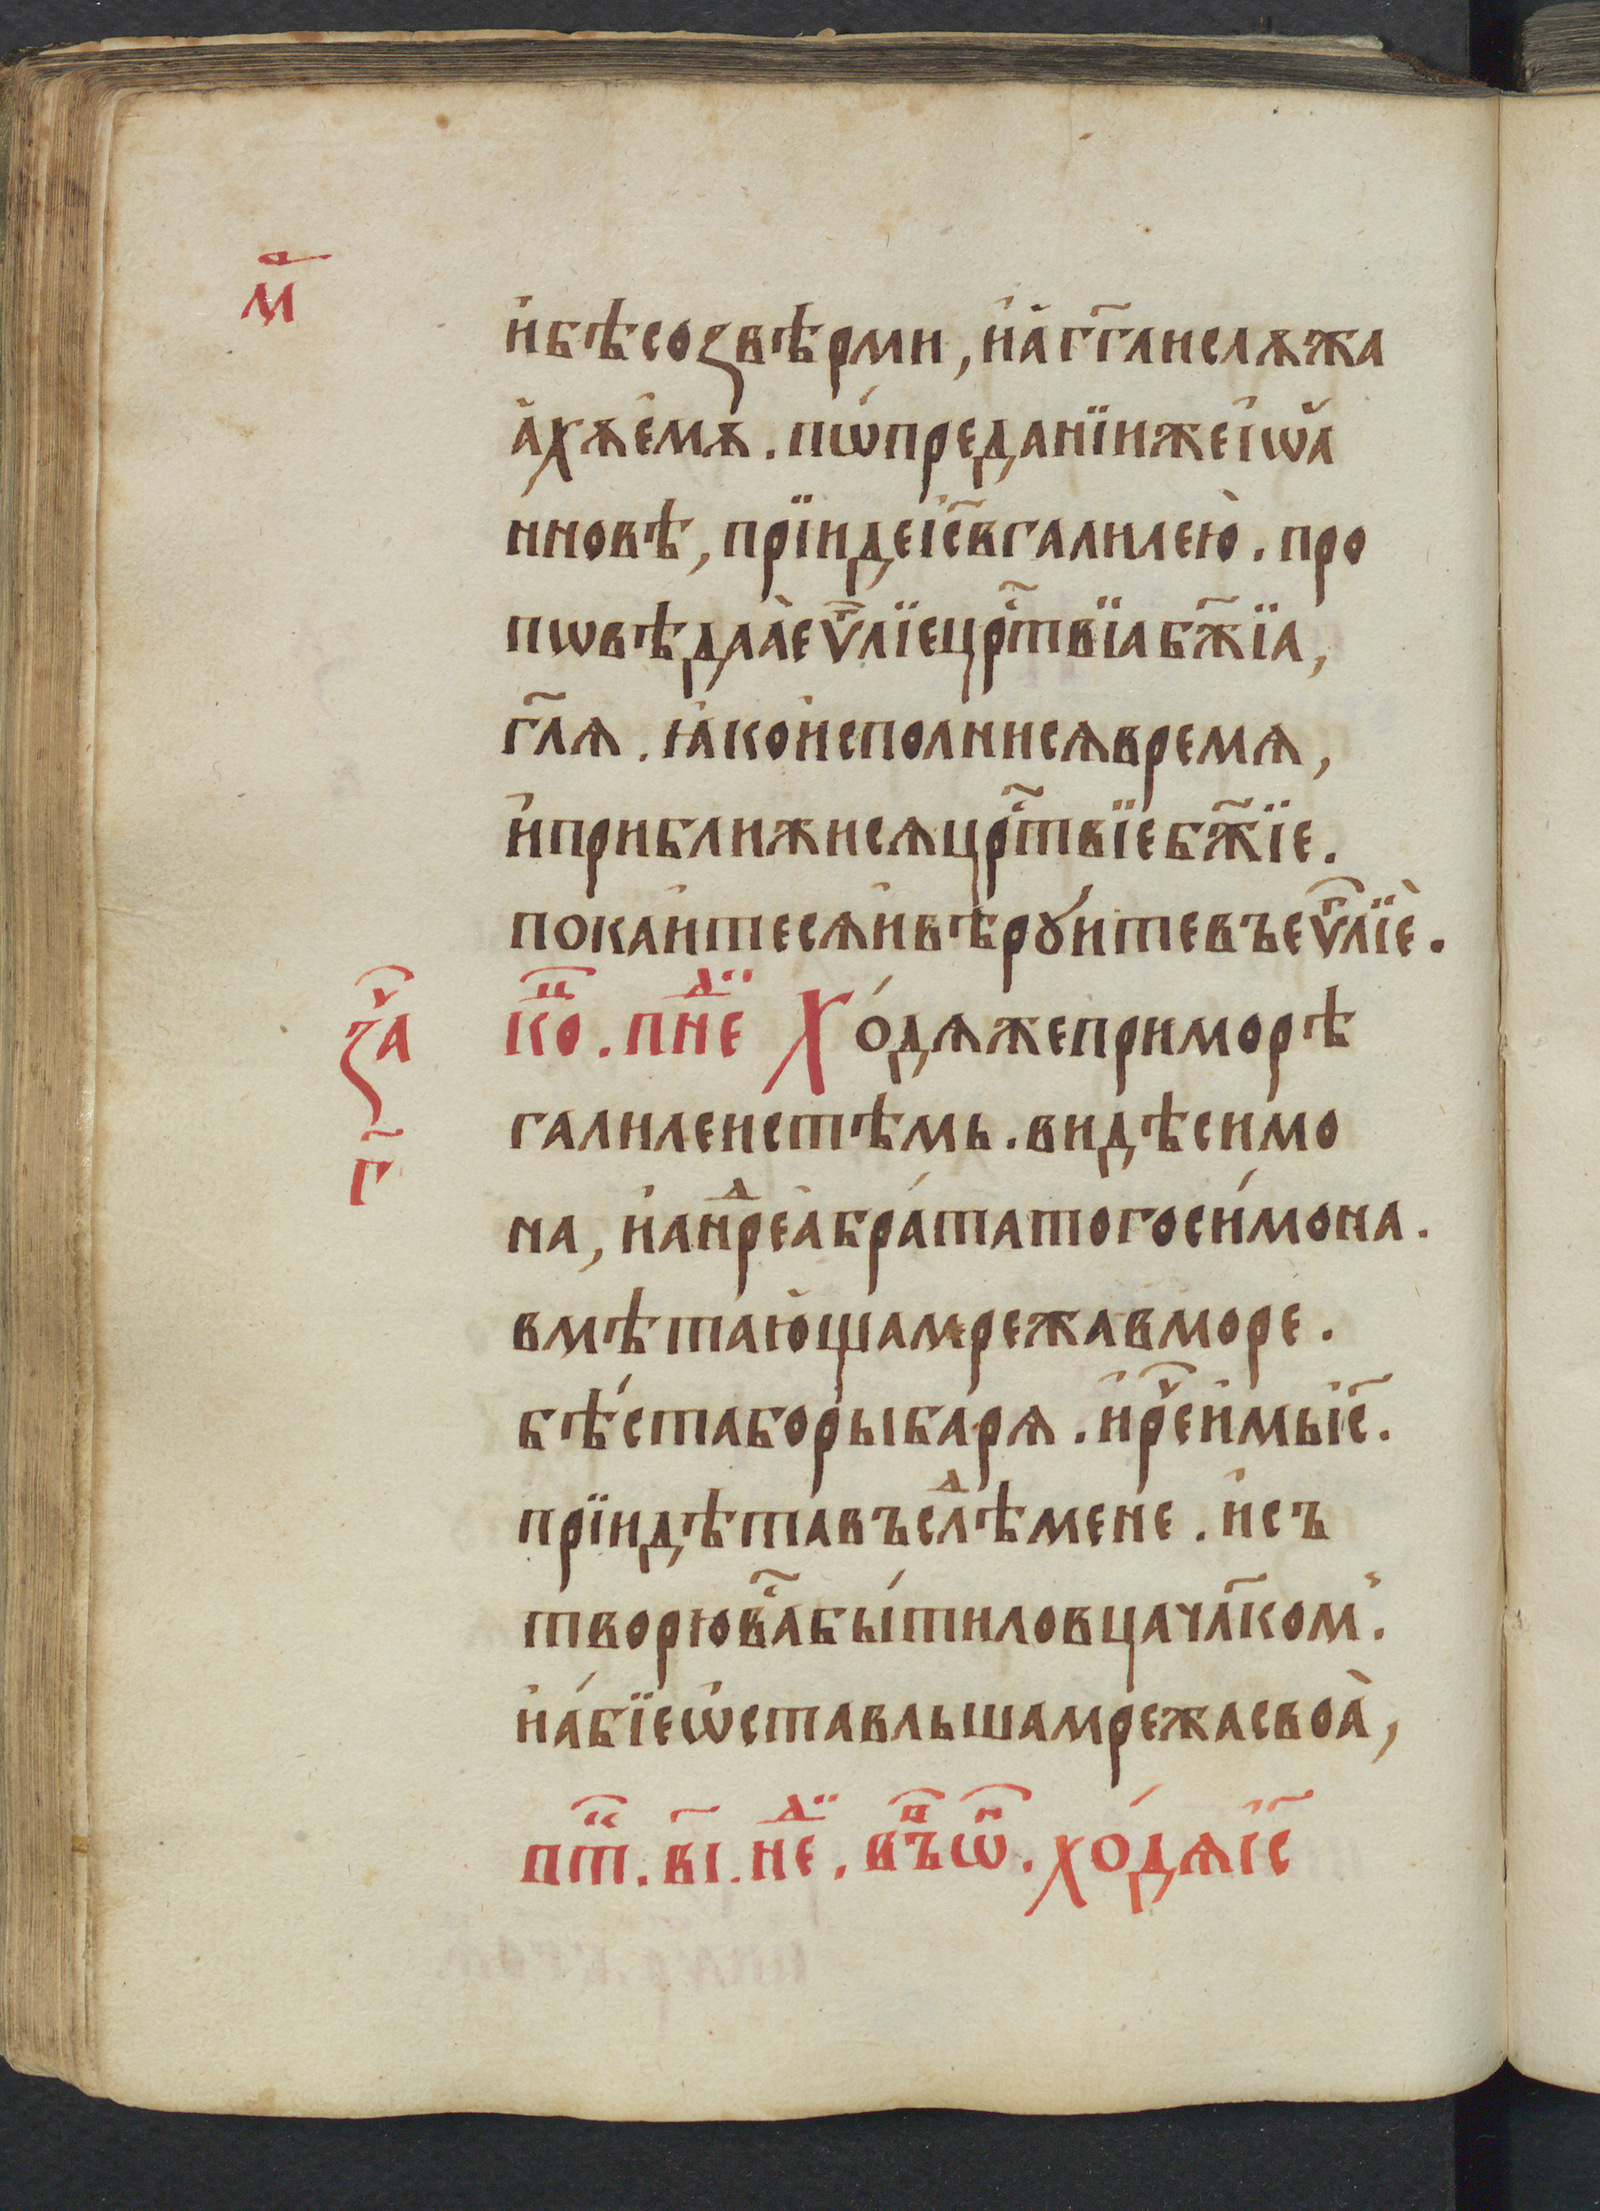 мⷶ҇
и҆бѣсоꙁвѣрми, и҆а҆гг҃лислѧжа
а҆хѧе҆мѧ. пѡ́преданїижеі҆ѡа҆
нновѣ, прїидеі҆с҃вгалилею҆. про
пѡвѣдаа҆еѵⷢ҇лїецрⷭ҇твїабж҃їа,
гл҃ѧ. ꙗ҆кои҆сполнисѧвремѧ,
и҆приближисѧцрⷭ҇твїебж҃їе.
покаи҆тесѧи҆вѣрꙋитевъеѵⷢ҇лїе.
ꙁаⷱ҇
г҃
коⷰ҇. пнеⷣ Хо́дѧжеприморѣ
галилеистѣмь. видѣсимо
на, и҆анⷣреа҆бра́татогоси́мона.
вмѣтаю҆щамрежавморе.
бѣ́стаборы҆барѧ. и҆реⷱ҇и҆мъі҆с҃.
прїидѣтавъслⷣѣмене. и҆съ
творюваⷭ҇бы́тиловцачл҃комъ.
и҆а́бїеѡ҆ставльшамрежасвоа̀,
птⷦ҇. в҃і. неⷣ. въⷩ҇ѡⷩ҇. хо́дѧі҆с҃